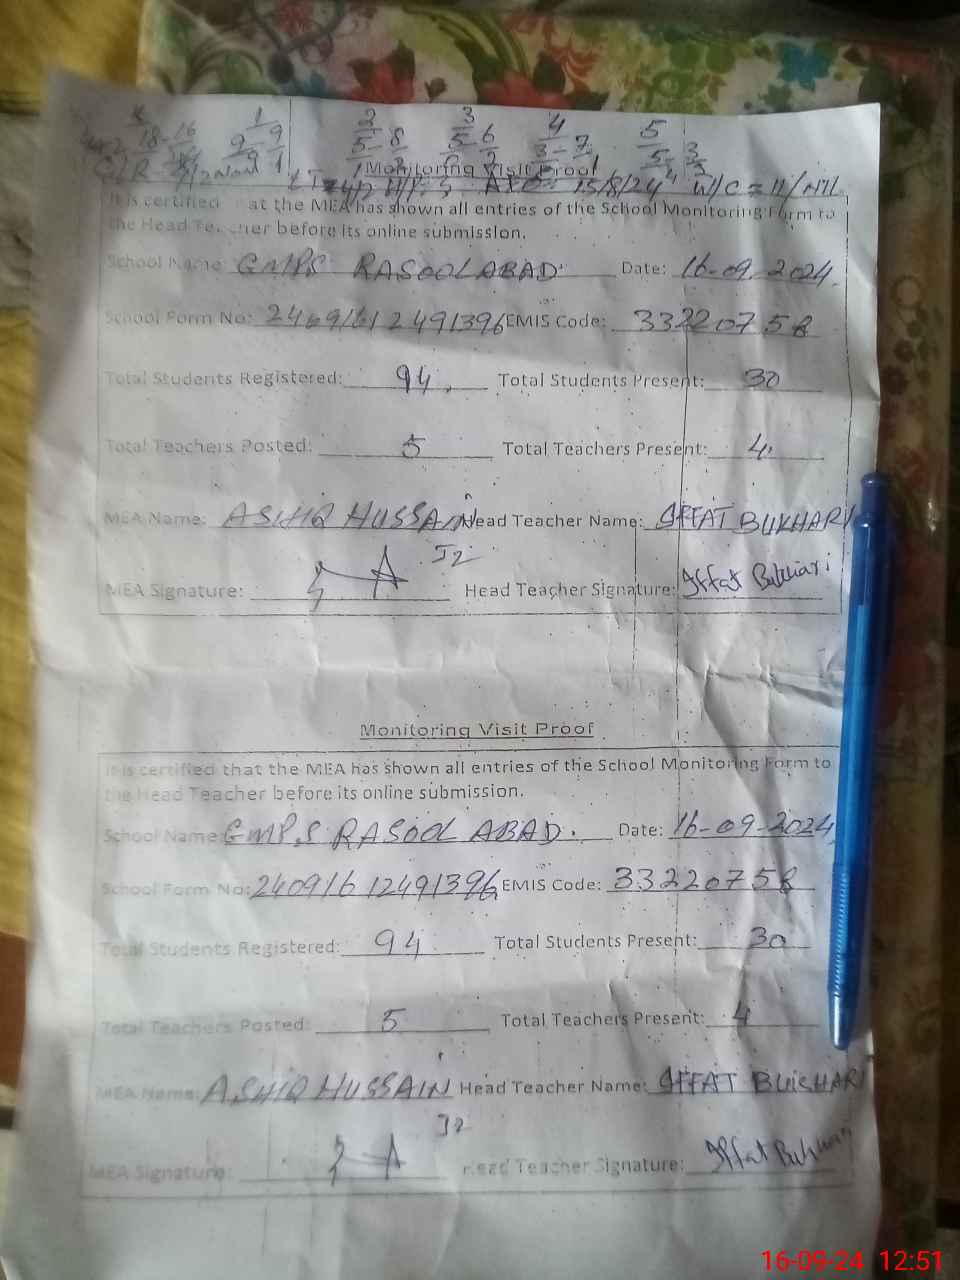 Monitoring Visit Proof
15/8/24
It is certified at the MEA has shown all entries of the School Monitoring Form to
the Head Teacher before its online submission.
School Name: GMPS RASOOLABAD Date: 16-09-2024
School Form No: 24091612491396 EMIS Code: 33220758
Total Students Registered: 94 Total Students Present: 30
Total Teachers Posted: 5 Total Teachers Present: 4
MEA Name: ASHIQ HUSSAIN Head Teacher Name: IFFAT BUKHARI
MEA Signature: Head Teacher Signature: Iffat Bukhari
Monitoring Visit Proof
It is certified that the MEA has shown all entries of the School Monitoring Form to
the Head Teacher before its online submission.
School Name: GMPS RASOOL ABAD. Date: 16-09-2024
School Form No: 24091612491396 EMIS Code: 33220758
Total Students Registered: 94 Total Students Present: 30
Total Teachers Posted: 5 Total Teachers Present: 4
MEA Name: ASHIQ HUSSAIN Head Teacher Name: IFFAT BUKHARI
MEA Signature: Head Teacher Signature: Iffat Bukhari
16-09-24 12:51